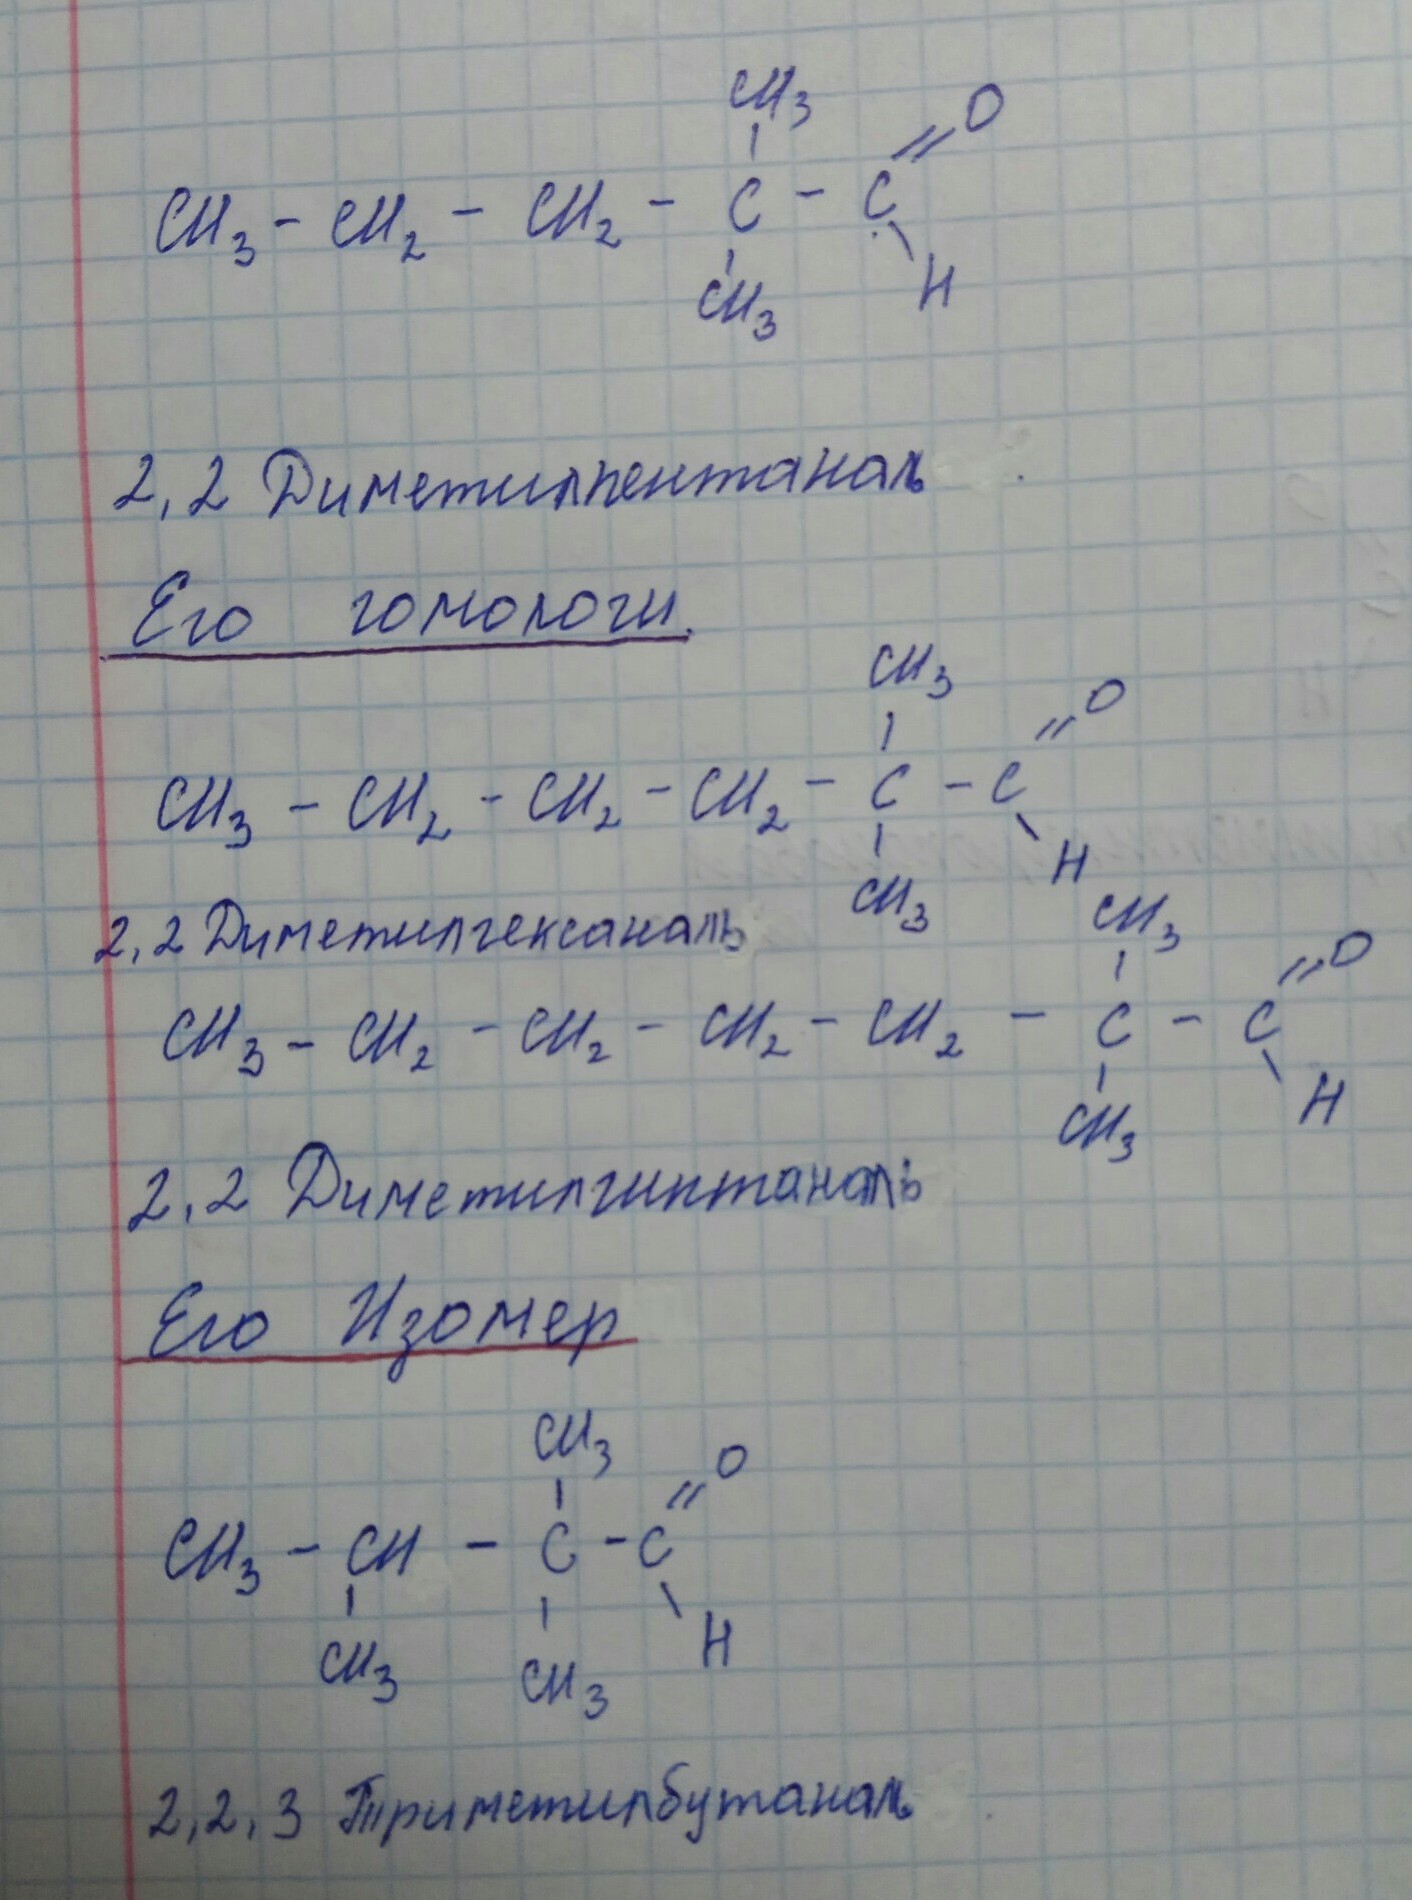 CH3
CH3 - CH2 - CH2 - C - C = O
CH3 H
2,2 Диметилпентаналь
Его гомологи.
CH3
CH3 - CH2 - CH2 - CH2 - C - C = O
CH3 H
2,2 Диметилгексаналь
CH3
CH3 - CH2 - CH2 - CH2 - CH2 - C - C = O
CH3 H
2,2 Диметилгиптаналь
Его Изомер
CH3
CH3 - CH - C - C = O
CH3 CH3 H
2,2,3 Триметилбутаналь